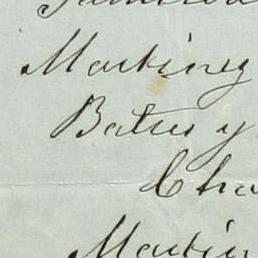 Martinez
Batres y
Cha
Martin